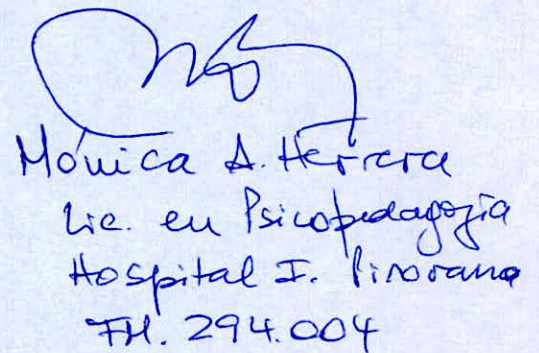 Mónica A. Herrera
Lic. en Psicopedagogía
Hospital I. Pirovano
FM. 294.004